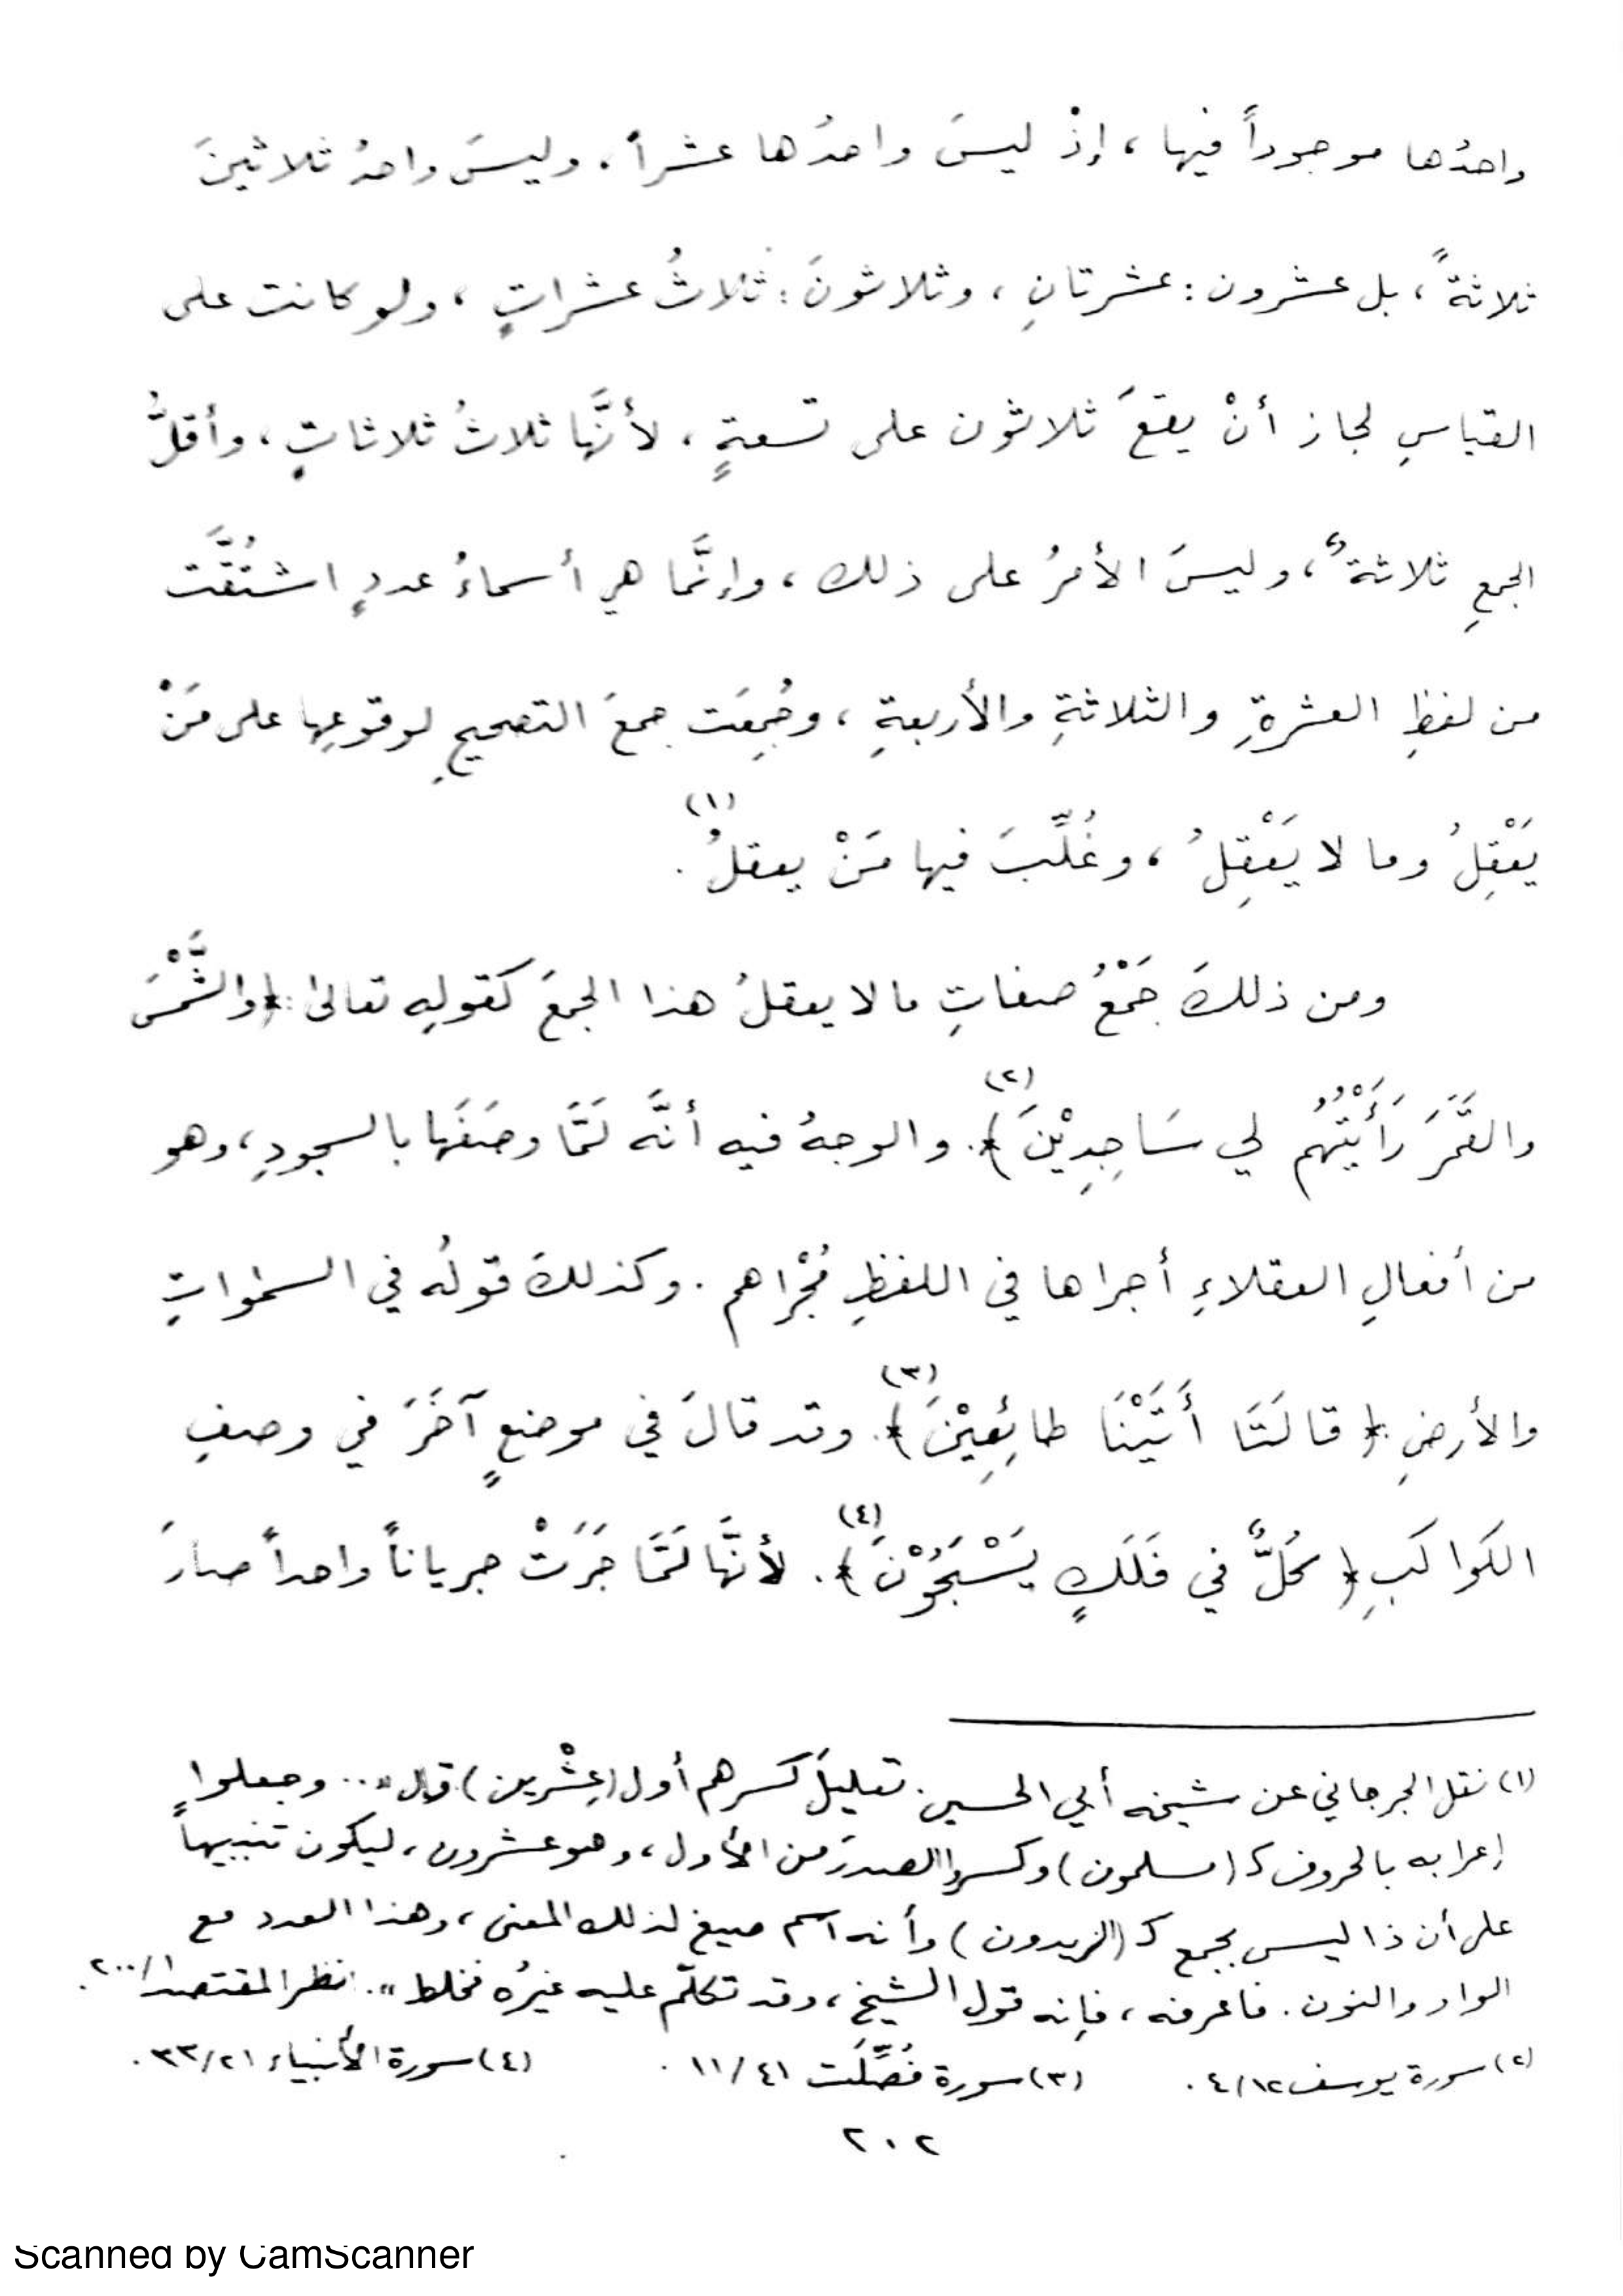 واحدُها موجوداً فيها ، إذْ ليسَ واحدُها عشراً ، وليسَ واحدُ ثلاثينَ
ثلاثةً ، بل عشرون : عشرتانِ ، وثلاثونَ : ثلاثُ عشراتٍ ، ولو كانت على
القياسِ لجاز أنْ يقعَ ثلاثون على تسعةٍ ، لأنَّها ثلاثُ ثلاثاتٍ ، وأقلُّ
الجمعِ ثلاثةٌ ، وليسَ الأمرُ على ذلك ، وإنَّما هي أسماءُ عددٍ اشتُقَّت
من لفظِ العشرةِ والثلاثةِ والأربعةِ ، وجُمِعَت جمعَ التصحيحِ لوقوعِها على مَنْ
يَعْقِلُ وما لا يَعْقِلُ ، وغُلِّبَ فيها مَنْ يعقلُ (١) .
ومن ذلكَ جَمْعُ صفاتِ ما لا يعقلُ هذا الجمعَ كقولِه تعالى : ﴿ والشَّمْسَ
والقَمَرَ رَأَيْتُهُم لي سَاجِدِيْنَ ﴾ (٢) . والوجهُ فيه أنَّه لَمَّا وصَفَها بالسجودِ ، وهو
من أفعالِ العقلاءِ أجراها في اللفظِ مُجْراهم . وكذلكَ قولُه في السموٰاتِ
والأرضِ : ﴿ قالَتَا أَتَيْنَا طائِعِيْنَ ﴾ (٣) . وقد قالَ في موضعٍ آخَرَ في وصفِ
الكواكبِ ﴿ كُلٌّ في فَلَكٍ يَسْبَحُوْنَ ﴾ (٤) . لأنَّها لَمَّا جَرَتْ جرياناً واحداً صارَ
(١) نقل الجرجاني عن شيخه أبي الحسين تعليلَ كسرهم أول (عِشْرين) قال « .. وجعلوا
إعرابه بالحروف كـ (مسلمون) وكسروا الصدرَ من الأول ، وهو عشرون ، ليكون تنبيهاً
على أن ذا ليس بجمع كـ (الزيدون) وأنه اسم صيغ لذلك المعنى ، وهذا العدد مع
الواو والنون . فاعرفه ، فإنه قول الشيخ ، وقد تكلّم عليه غيرُه فخلط » . انظر المقتصد ١/ ٢٠٠ .
(٢) سورة يوسف ٤/١٢ . (٣) سورة فُصِّلَت ١١/٤١ . (٤) سورة الأنبياء ٣٣/٢١ .
٢٠٢
Scanned by CamScanner